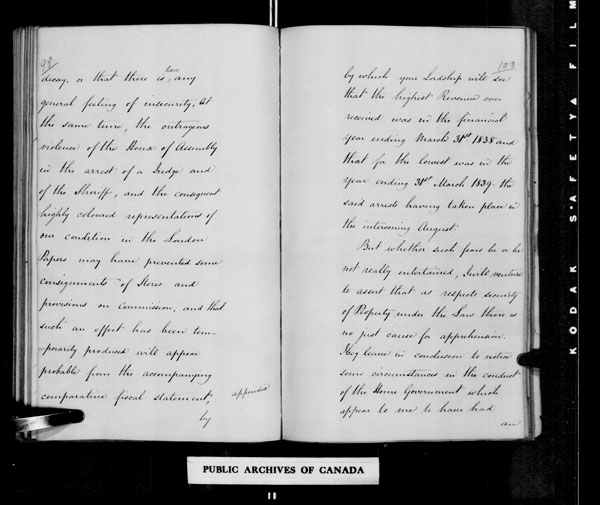 99
decay, or that there is here any
general feeling of insecurity. At
the same time, the outrageous
violence of the House of Assembly
in the arrest of a Judge and
of the Sheriff, and the consequent
highly coloured representations of
our condition in the London
Papers may have prevented some
consignments of Stores and
provisions on Commission, and that
such an effect has been tem-
-porarily produced will appear
probable from the accompanying
comparative fiscal statement, appended
by
100
by which your Lordship will see
that the highest Revenue ever
received was in the financial
year ending March 31st 1838 and
that for the lowest was in the
year ending 31st March 1839. the
said arrests having taken place in
the intervening August.
But whether such fears be or be
not really entertained, I will venture
to assert that as respects security
of Property under the Law there is
no just cause for apprehension.
I beg leave in conclusion to notice
some circumstances in the conduct
of the Home Government which
appear to me to have had
an
PUBLIC ARCHIVES OF CANADA
KODAK SAFETY FILM